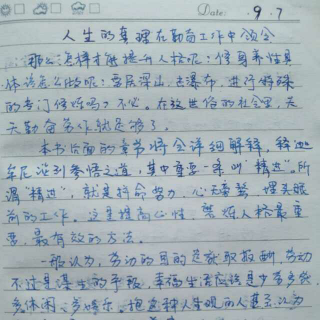 Date: 9.7
人生的真理在勤苦工作中领会
那么,怎样才能提升人格呢?修身养性具
体该怎么做呢?要居深山、击瀑布,进行特殊
的专门修炼吗?不必。在这世俗的社会里,天
天勤奋劳作就足够了。
本书后面的章节将会详细解释,释迦
牟尼谈到参悟之道,其中重要一条叫“精进”。所
谓“精进”,就是拼命努力,心无旁骛,埋头眼
前的工作。这是提高心性、磨炼人格最重
要、最有效的方法。
一般认为,劳动的目的是获取报酬,劳动
不过是谋生的手段,幸福生活应该是少劳多获
多休闲、多娱乐。抱这种人生观的人甚至认为